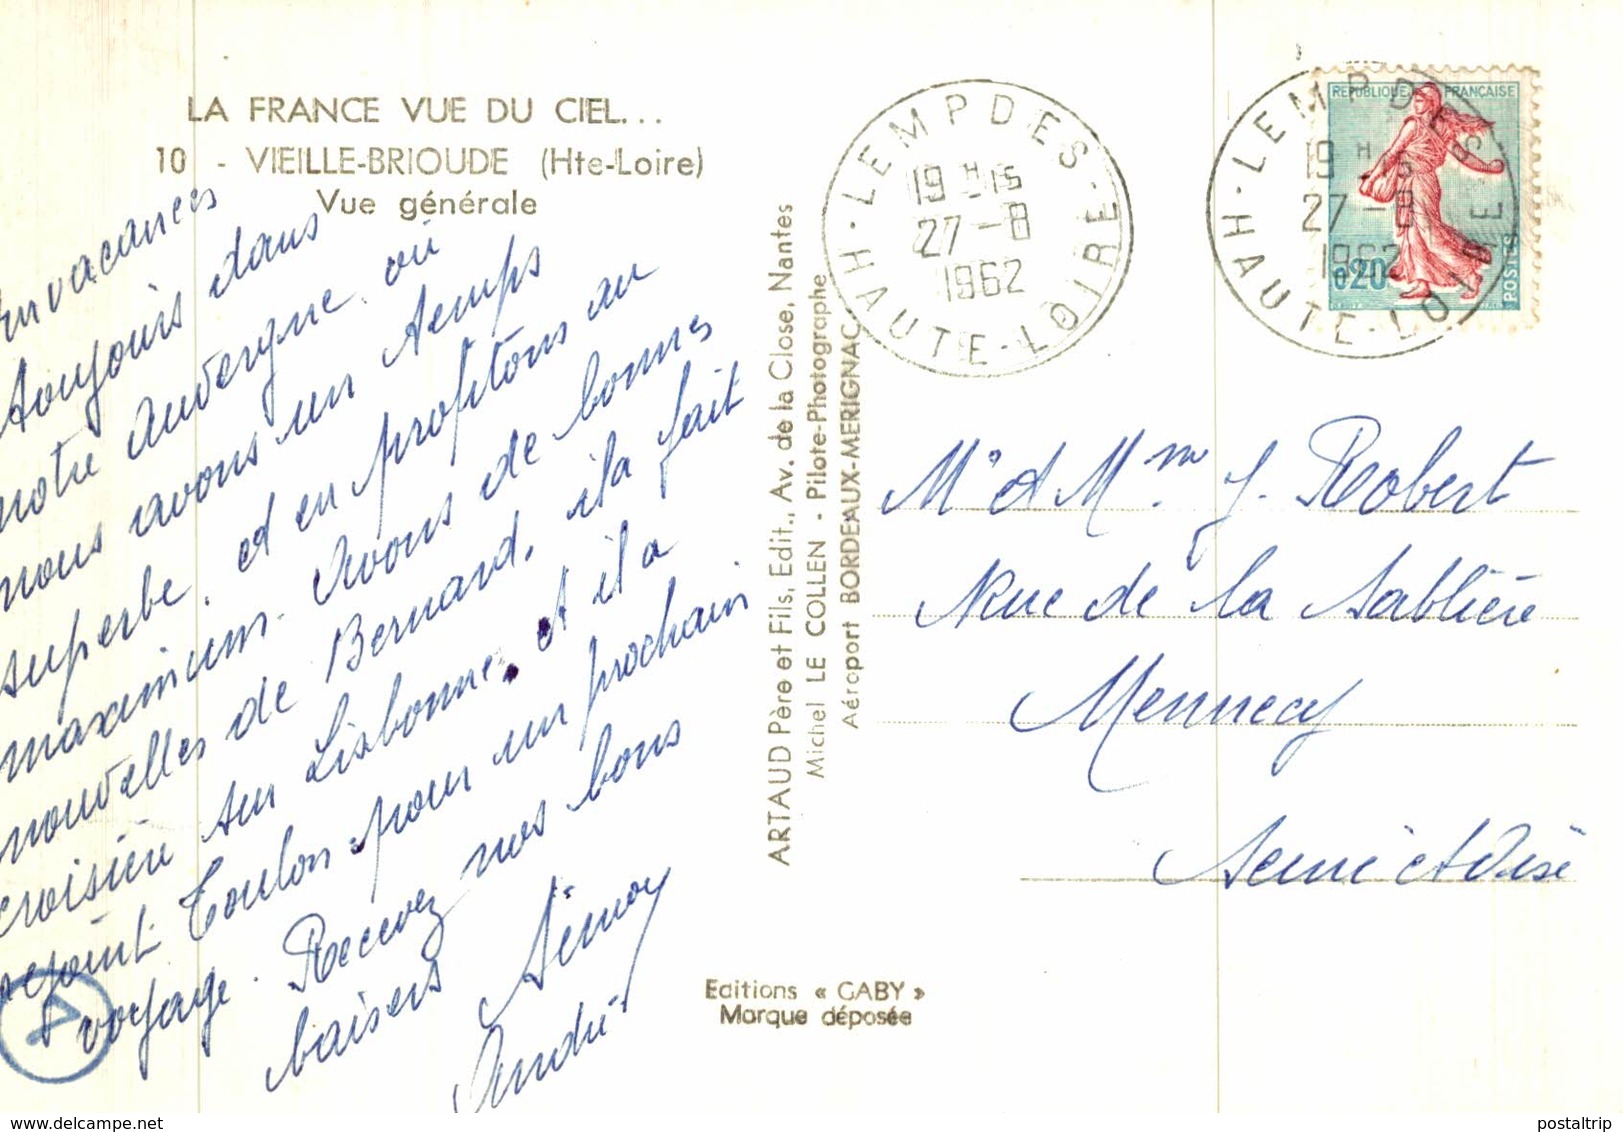 LA FRANCE VUE DU CIEL...
10 - VIEILLE-BRIOUDE (Hte-Loire)
Vue générale
En vacances
toujours dans
notre Auvergne où
nous avons un temps
superbe, et en profitons au
maximum. Avons de bonnes
nouvelles de Bernard, il a fait
croisière sur Lisbonne, et il a
rejoint Toulon pour un prochain
voyage. Recevez nos bons
baisers
Simon
André
ARTAUD Père et Fils, Edit., Av. de la Close, Nantes
Michel LE COLLEN - Pilote-Photographe
Aéroport BORDEAUX-MERIGNAC.
Editions « GABY »
Marque déposée
LEMPDES
19 H 15
27-8
1962
HAUTE-LOIRE
LEMPDES
19 H 15
27-8
1962
HAUTE-LOIRE
REPUBLIQUE FRANÇAISE
0,20
POSTES
Mr et Mme J. Robert
Rue de la Sablière
Mennecy
Seine et Oise
postaltrip